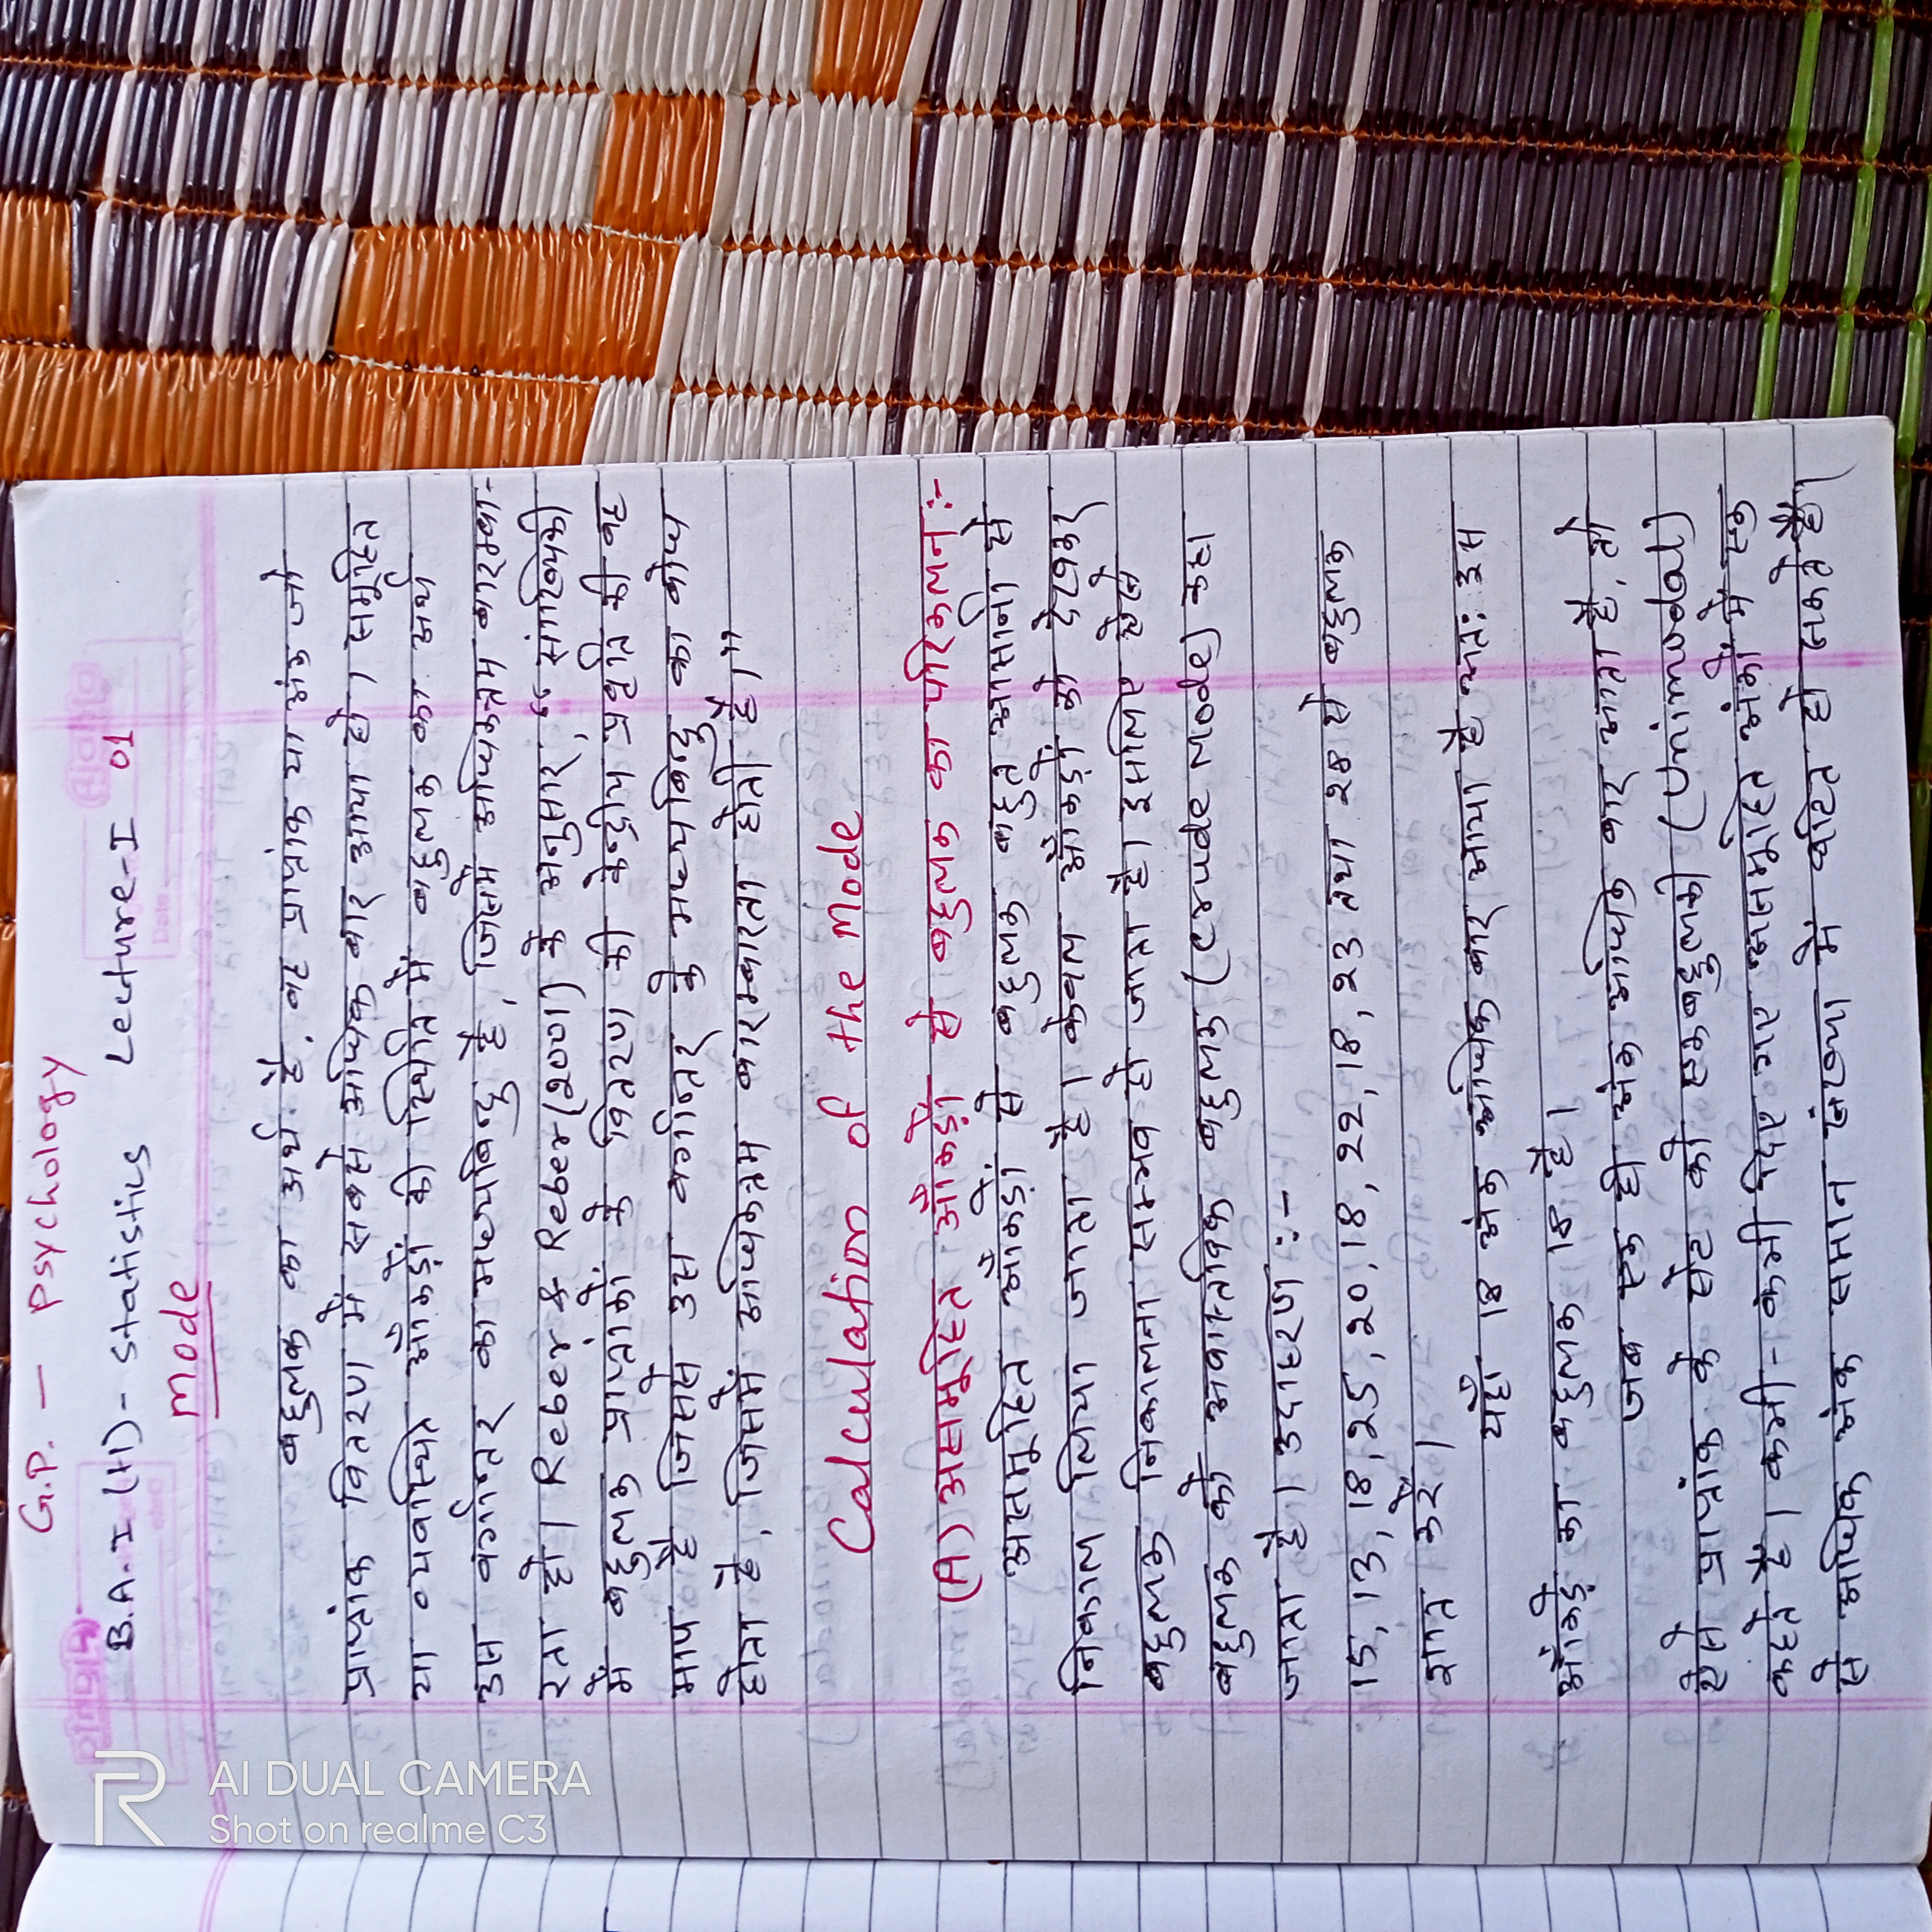 G.P. - Psychology
B.A.-I (H) - Statistics Lecture-I 01
Mode
बहुलक का अर्थ है, वह प्राप्तांक या अंक जो
प्राप्तांक वितरण में सबसे अधिक बार आया हो। समूहित
या व्यवस्थित आँकड़ों की स्थिति में बहुलक का अर्थ
उस वर्गान्तर का मध्यबिन्दु है, जिसमें अधिकतम बारम्बा-
रता हो। Reber & Reber (2001) के अनुसार, "सांख्यिकी
में बहुलक प्राप्तांकों के वितरण की केन्द्रीय प्रवृति की वह
माप है जिससे उस वर्गान्तर के मध्यबिन्दु का बोध
होता है, जिसमें अधिकतम बारम्बारता होती है।"
Calculation of the Mode
(A) असमूहित आँकड़ों से बहुलक का परिकलन:-
असमूहित आँकड़ों से बहुलक बहुत आसानी से
निकाल लिया जाता है। केवल आँकड़ों को देखकर
बहुलक निकालना सम्भव हो जाता है। इसलिए ऐसे
बहुलक को अवास्तविक बहुलक (crude Mode) कहा
जाता है। उदाहरण:-
15, 13, 18, 25, 20, 18, 22, 18, 23 तथा 28 से बहुलक
ज्ञात करें।
यहाँ 18 अंक अधिक बार आया है अतः इस
आँकड़े का बहुलक 18 है।
जब एक ही अंक अधिक बार आता है, तो
ऐसे प्राप्तांक के सेट को एकबहुलकी (Unimodal)
कहते हैं। कभी-कभी दिए गए असमूहित अंकों में एक
से अधिक अंक समान संख्या में घटित हो सकते हैं।
AI DUAL CAMERA
Shot on realme C3